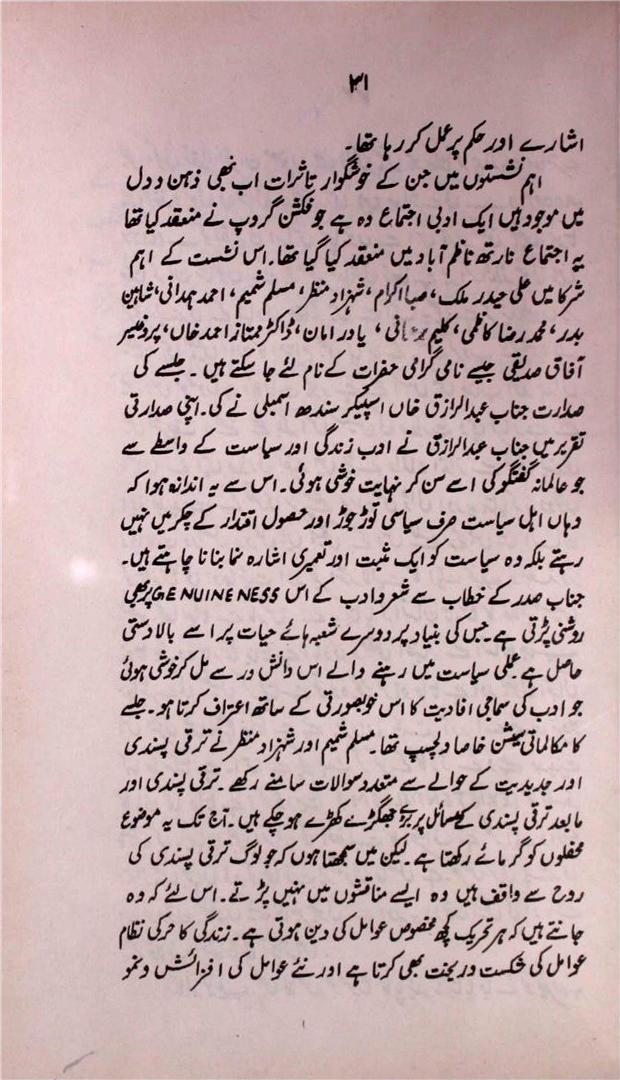 ۳۱
اشارے اور حکم پر عمل کر رہا تھا۔
اہم نشستوں میں جن کے خوشگوار تاثرات اب بھی ذہن و دل
میں موجود ہیں ایک ادبی اجتماع وہ ہے جو فکشن گروپ نے منعقد کیا تھا
یہ اجتماع نارتھ ناظم آباد میں منعقد کیا گیا تھا۔ اس نشست کے اہم
شرکا میں علی حیدر ملک، صبا اکرام، شہزاد منظر، مسلم شمیم، احمد ہمدانی، شاہین
بدر، محمد رضا کاظمی، کلیم، یاور امان، ڈاکٹر ممتاز احمد خاں، پروفیسر
آفاق صدیقی جیسے نامی گرامی حضرات کے نام لئے جا سکتے ہیں ۔ جلسے کی
صدارت جناب عبدالرازق خاں اسپیکر سندھ اسمبلی نے کی۔ اپنی صدارتی
تقریر میں جناب عبدالرازق نے ادب زندگی اور سیاست کے واسطے سے
جو عالمانہ گفتگو کی اسے سن کر نہایت خوشی ہوئی۔ اس سے یہ اندازہ ہوا کہ
وہاں اہل سیاست صرف سیاسی توڑ جوڑ اور حصول اقتدار کے چکر میں نہیں
رہتے بلکہ وہ سیاست کو ایک مثبت اور تعمیری اشارہ نما بنانا چاہتے ہیں۔
جناب صدر کے خطاب سے شعر و ادب کے اس GENUINENESS پر بھی
روشنی پڑتی ہے۔ جس کی بنیاد پر دوسرے شعبہ ہائے حیات پر اسے بالادستی
حاصل ہے عملی سیاست میں رہنے والے اس دانش ور سے مل کر خوشی ہوئی
جو ادب کی سماجی افادیت کا اس خوبصورتی کے ساتھ اعتراف کرتا ہو۔ جلسے
کا مکالماتی سیشن خاصا دلچسپ تھا۔ مسلم شمیم اور شہزاد منظر نے ترقی پسندی
اور جدیدیت کے حوالے سے متعدد سوالات سامنے رکھے ۔ ترقی پسندی اور
مابعد ترقی پسندی کے مسائل پر بڑے جھگڑے کھڑے ہو چکے ہیں ۔ آج تک یہ موضوع
محفلوں کو گرمائے رکھتا ہے۔ لیکن میں سمجھتا ہوں کہ جو لوگ ترقی پسندی کی
روح سے واقف ہیں وہ ایسے مناقشوں میں نہیں پڑتے۔ اس لئے کہ وہ
جانتے ہیں کہ ہر تحریک کچھ مخصوص عوامل کی دین ہوتی ہے۔ زندگی کا حرکی نظام
عوامل کی شکست و ریخت بھی کرتا ہے اور نئے عوامل کی افزائش و نمو